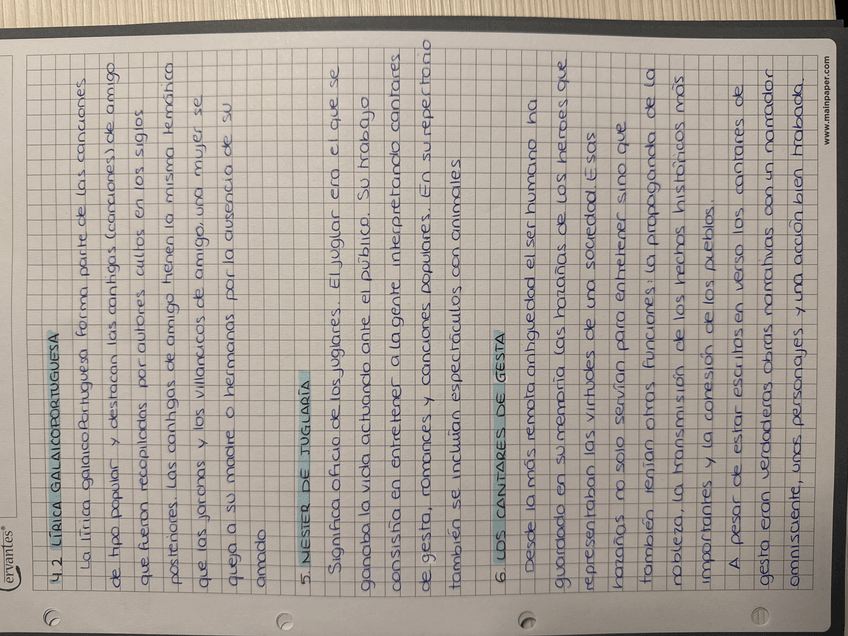 4.2 LÍRICA GALAICOPORTUGUESA
La lírica galaicoportuguesa forma parte de las canciones
de tipo popular y destacan las cantigas (canciones) de amigo
que fueron recopiladas por autores cultos en los siglos
posteriores. Las cantigas de amigo tienen la misma temática
que las jarchas y los villancicos de amigo, una mujer se
queja a su madre o hermanas por la ausencia de su
amado
5. MESTER DE JUGLARÍA
Significa oficio de los juglares. El juglar era el que se
ganaba la vida actuando ante el público. Su trabajo
consistía en entretener a la gente interpretando cantares
de gesta, romances y canciones populares. En su repertorio
también se incluían espectáculos con animales
6. LOS CANTARES DE GESTA
Desde la más remota antiguedad el ser humano ha
guardado en su memoria las hazañas de los heroes que
representaban las virtudes de una sociedad. Esas
hazañas no solo servían para entretener sino que
también tenían otras funciones: la propaganda de la
nobleza, la transmisión de los hechos históricos más
importantes y la cohesión de los pueblos.
A pesar de estar escritos en verso los cantares de
gesta eran verdaderas obras narrativas con un narrador
omnisciente, unos personajes y una acción bien trabada.
www.mainpaper.com
ervantes®